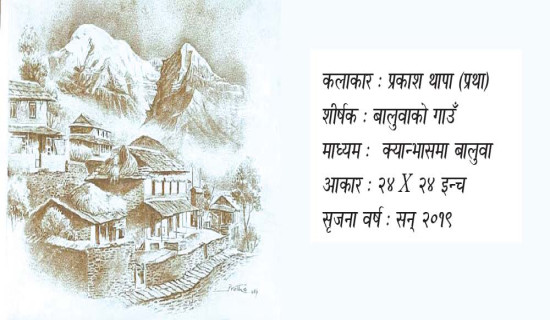 कलाकार : प्रकाश थापा (प्रथा)
शीर्षक : बालुवाको गाउँ
माध्यम : क्यान्भासमा बालुवा
आकार : २४ X २४ इन्च
सृजना वर्ष : सन् २०१९